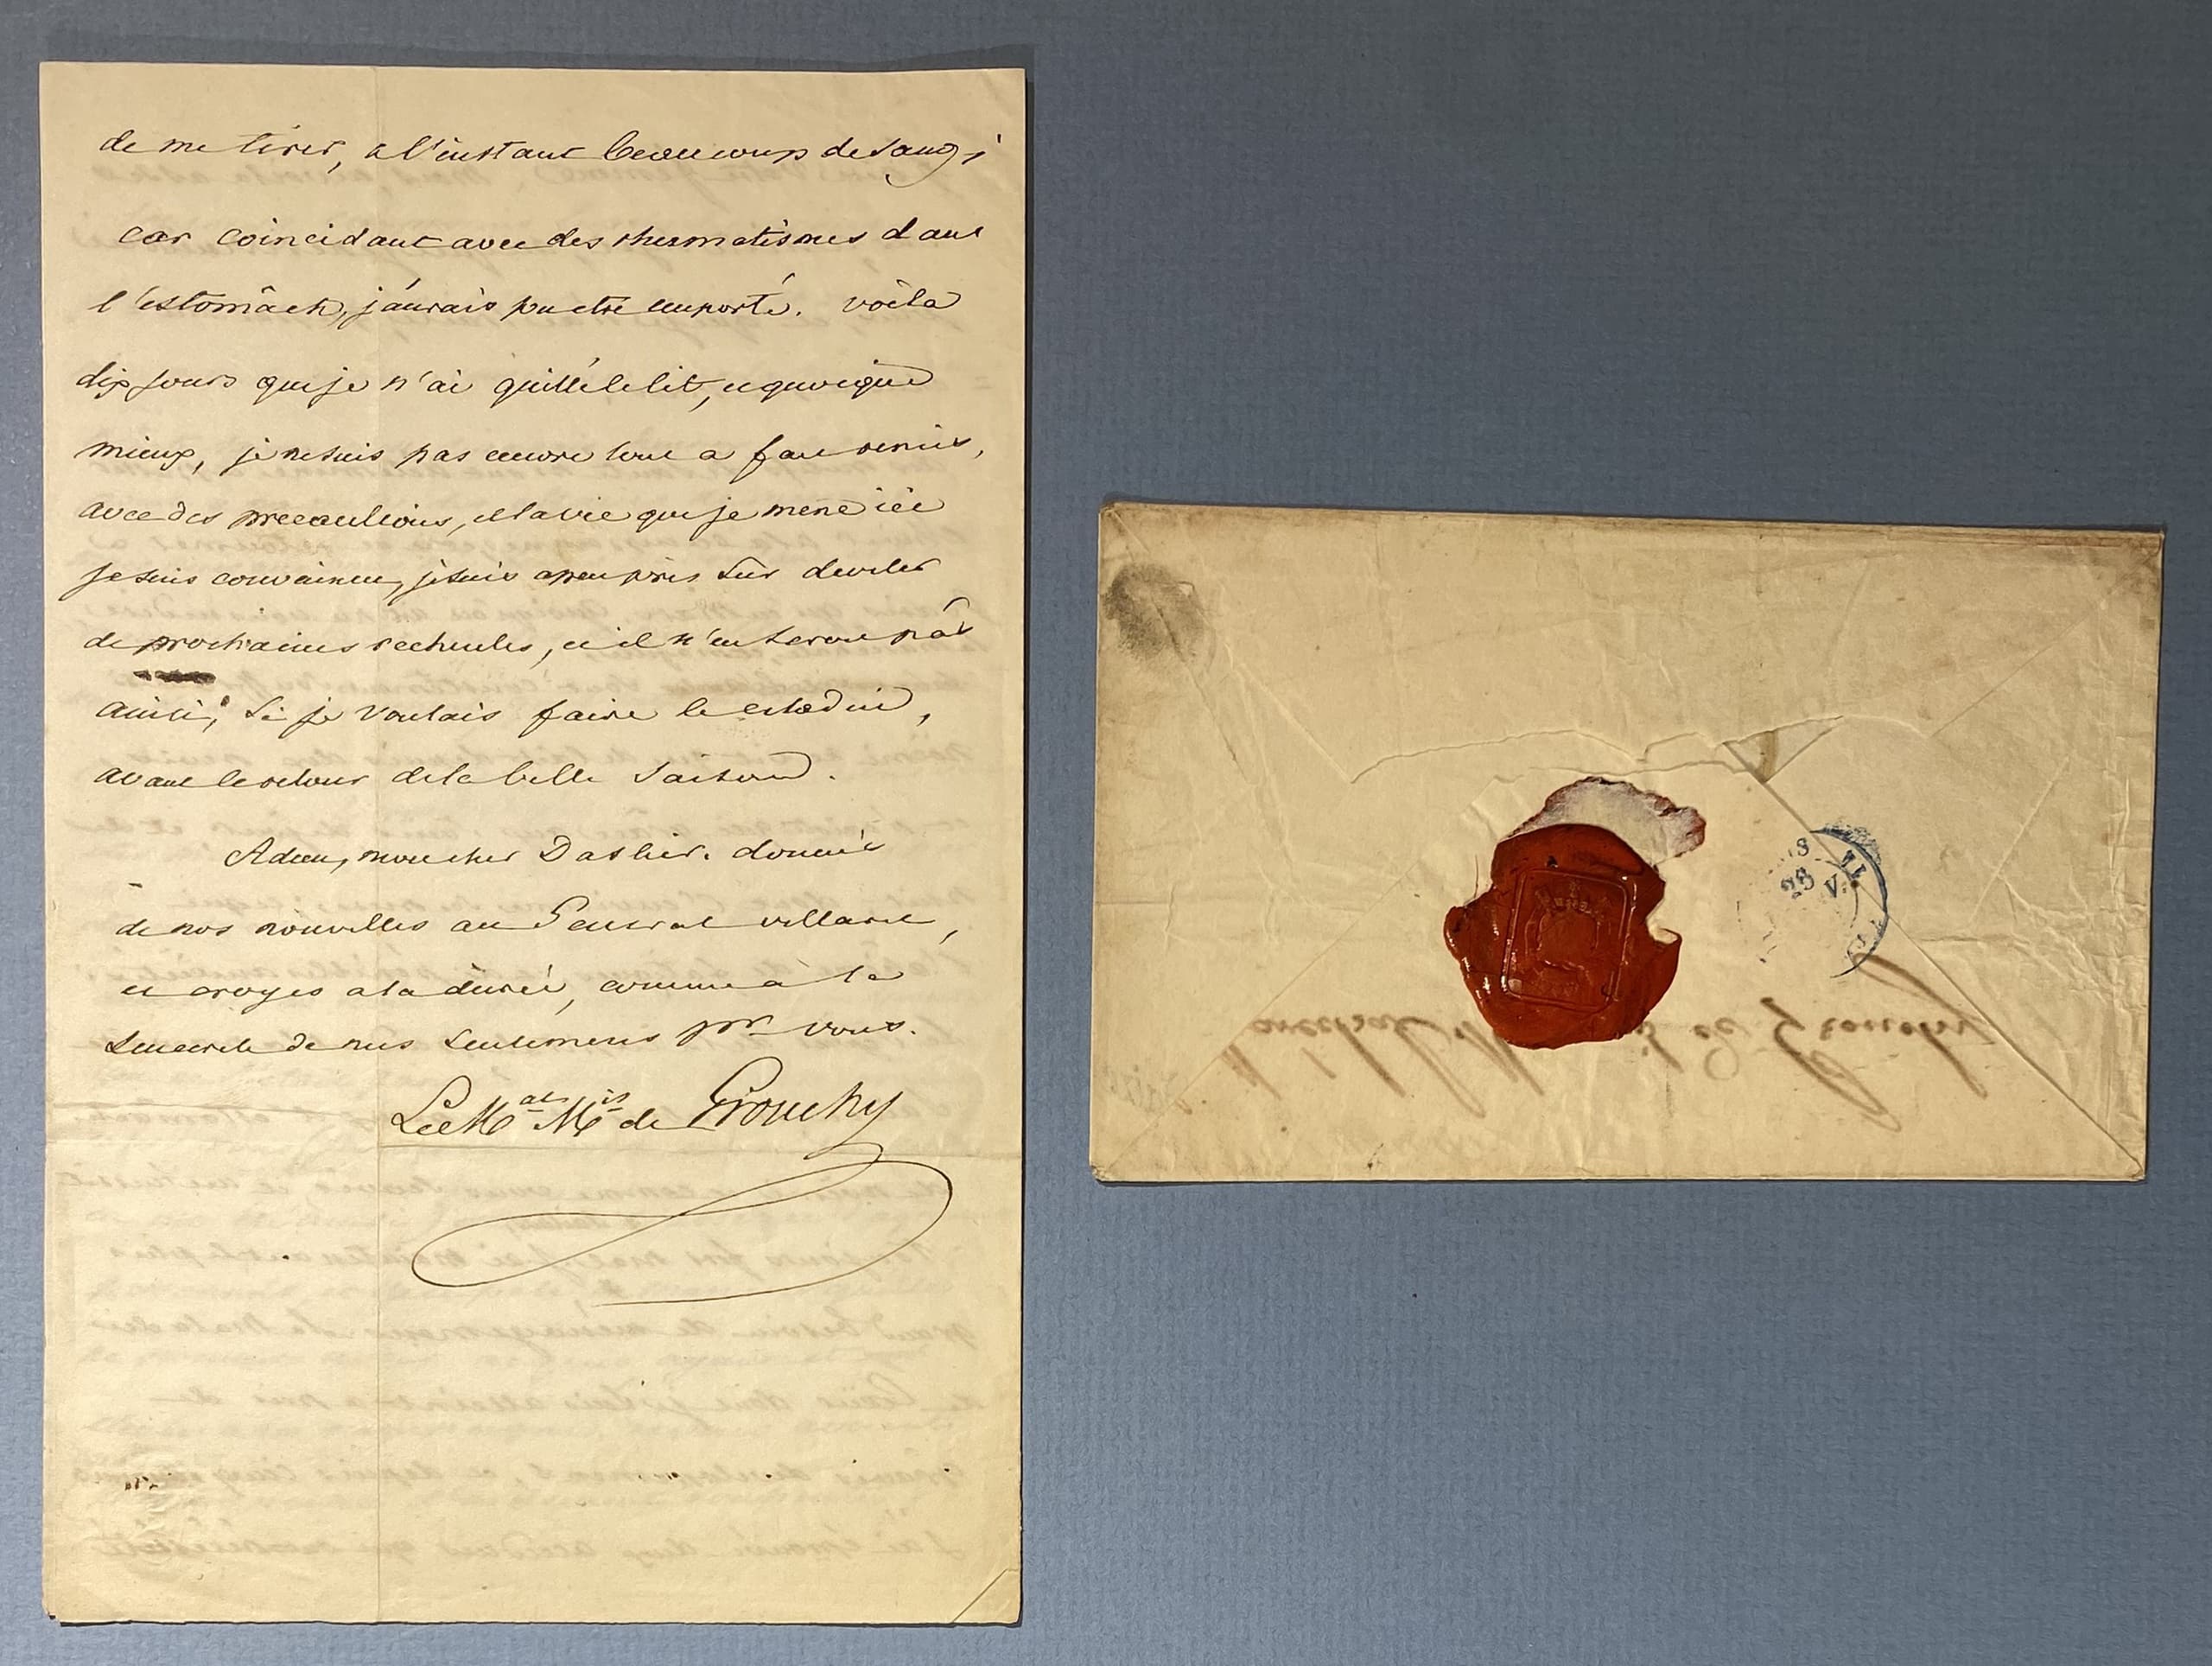 de me tirer, a l'instant beaucoup de sang;
car coincidant avec des rhumatismes dans
l'estomach, j'aurais pu etre emporté. voila
dix jours que je n'ai quitté le lit, et quoique
mieux, je ne suis pas encore tout a fait remis,
avec des precautions, et la vie que je mene ici
je suis convaincu, je suis a peu près sur d'eviter
de prochaines rechutes, et il n'en serait pas
ainsi, si je voulais faire le citadin,
avant le retour de la belle saison.
Adieu, mon cher Dastier. donnés
de nos nouvelles au General villaret,
et croyes a la durée, comme à la
sincerité de mes sentimens pr vous.
Le Mal Mis de Grouchy
28
Mis de Grouchy